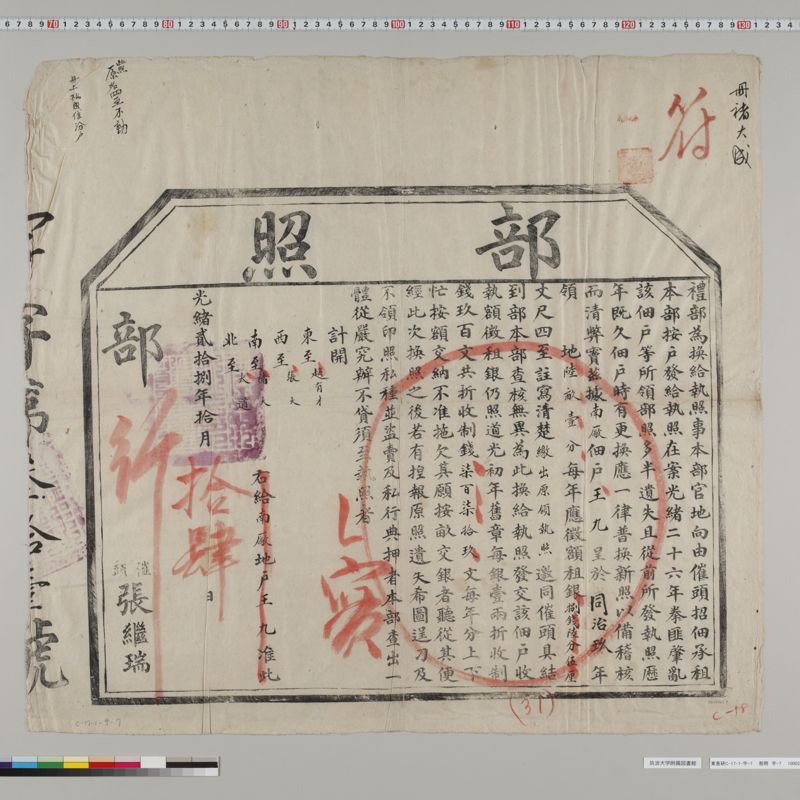 冊褚大
符
部照
禮部為換給執照事本部官地向由催頭招佃承租
本部按戶發給執照在案光緒二十六年拳匪肇亂
該佃戶等所領部照多半遺失且從前所發執照歷
年既久佃戶時有更換應一律普換新照以備稽核
而清弊竇茲據南厰佃戶王九呈於同治玖年
領 地陸畝壹分每年應徵額租銀捌錢陸分伍厘
丈尺四至註寫清楚繳出原領執照邀同催頭具結
到部本部查核無異為此換給執照發交該佃戶收
執額徵租銀仍照道光初年舊章每銀壹兩折收制
錢玖百文共折收制錢柒百柒拾玖文每年分上下
忙按額交納不准拖欠其願按畝交銀者聽從其便
經此次換照之後若有揑報原照遺失希圖逞刁及
不領印照私種並盜賣及私行典押者本部查出一
體從嚴究辦不貸須至執照者
計開
東至趙有才
西至張天
南至
北至大道
右給南厰地戶王九准此
光緒貳拾捌年拾月拾肆日
部
行
實
催頭張繼瑞
字第叁拾壹號
原拾四至不動
(31)
C-18
C-17-1-字-7
筑波大学附属図書館
70 80 90 100 110 120 130